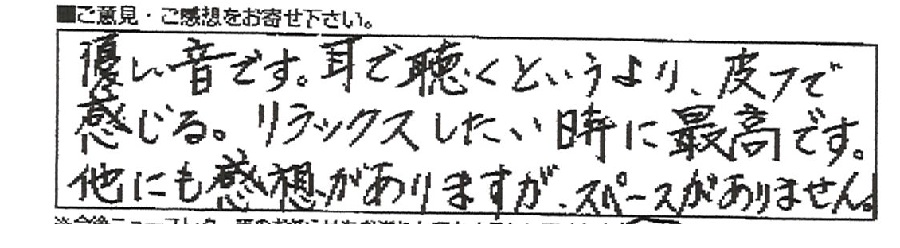 ■ご意見・ご感想をお寄せ下さい。
優しい音です。耳で聴くというより、皮フで
感じる。リラックスしたい時に最高です。
他にも感想がありますが、スペースがありません。